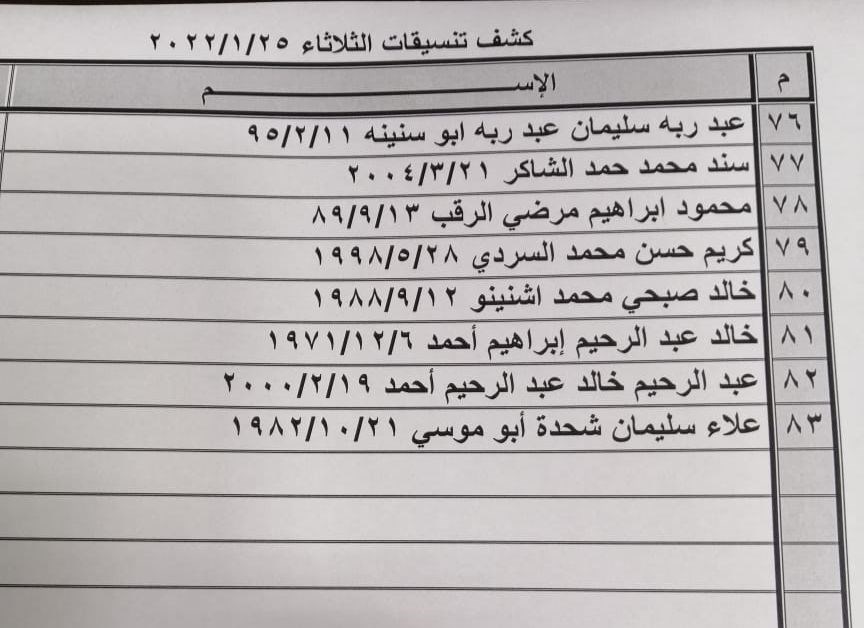 كشف تنسيقات الثلاثاء ٢٠٢٢/١/٢٥
م الإســـــــــــــــــــــــــــــــــم
٧٦ عبد ربه سليمان عبد ربه ابو سنينه ٩٥/٢/١١
٧٧ سند محمد حمد الشاكر ٢٠٠٤/٣/٢١
٧٨ محمود ابراهيم مرضي الرقب ٨٩/٩/١٣
٧٩ كريم حسن محمد السردي ١٩٩٨/٥/٢٨
٨٠ خالد صبحي محمد اشنينو ١٩٨٨/٩/١٢
٨١ خالد عبد الرحيم إبراهيم أحمد ١٩٧١/١٢/٦
٨٢ عبد الرحيم خالد عبد الرحيم أحمد ٢٠٠٠/٢/١٩
٨٣ علاء سليمان شحدة أبو موسي ١٩٨٢/١٠/٢١